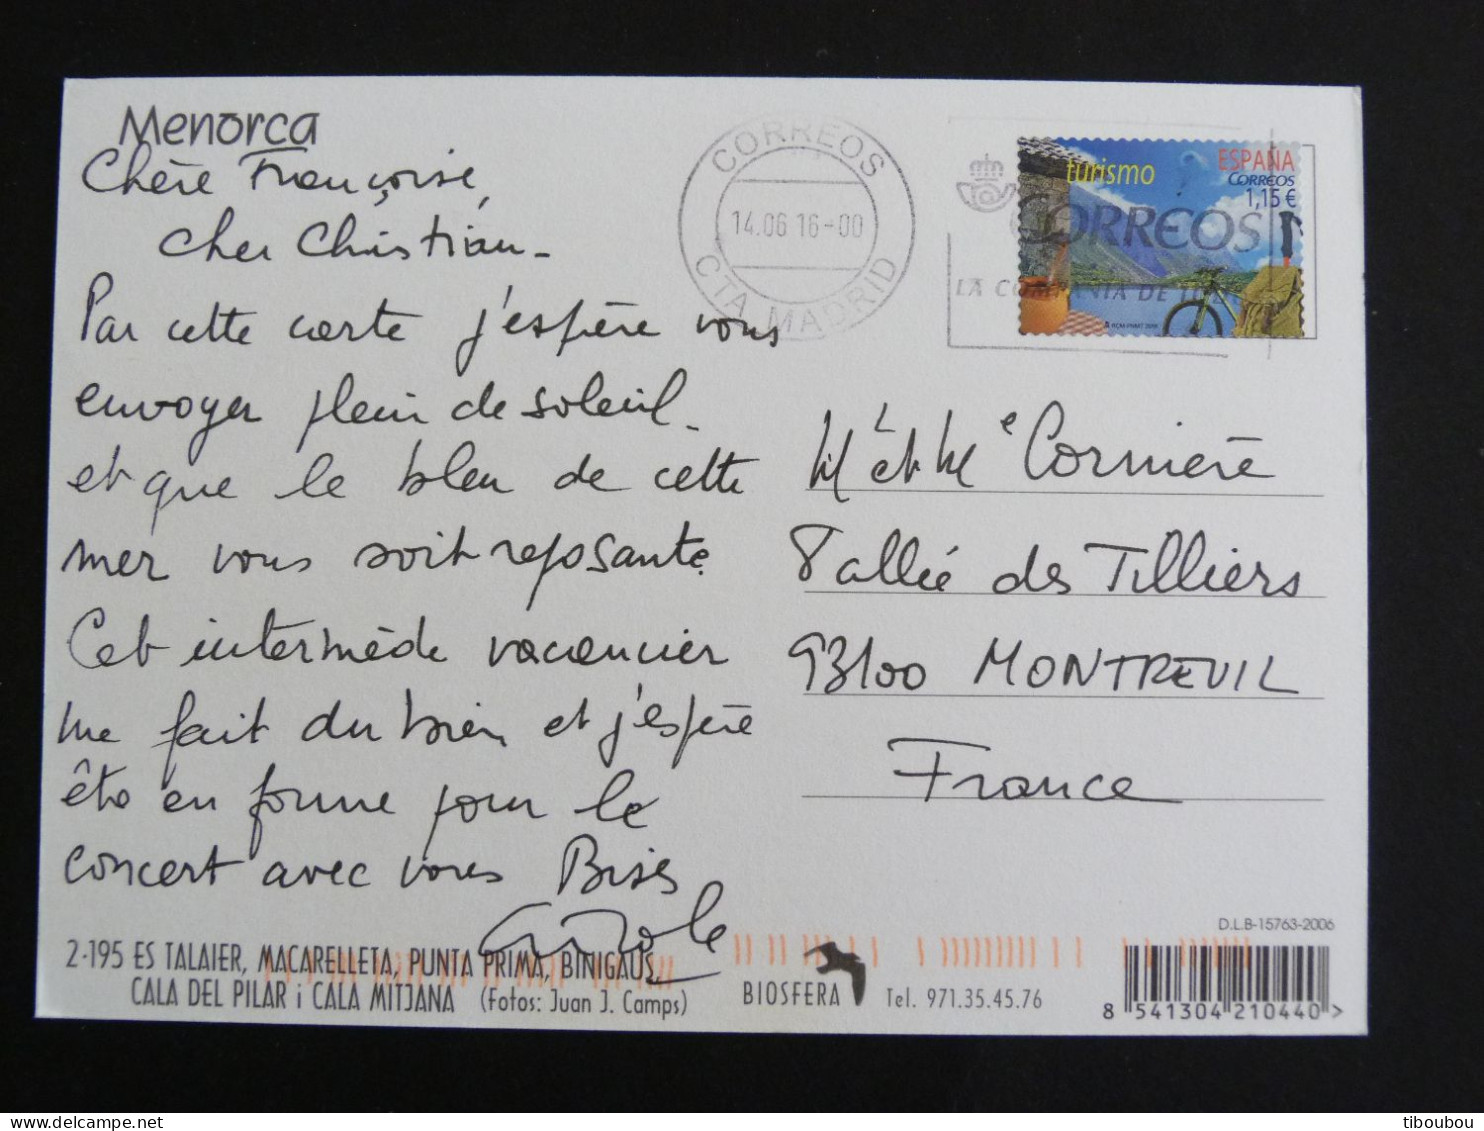 Menorca
Chère Françoise,
cher Christian_
Par cette carte j'espère vous
envoyer plein de soleil_
et que le bleu de cette
mer vous soit reposante.
Cet intermède vacancier
me fait du bien et j'espère
être en forme pour le
concert avec vous Bises
Carole
2-195 ES TALAIER, MACARELLETA, PUNTA PRIMA, BINIGAUS,
CALA DEL PILAR i CALA MITJANA (Fotos: Juan J. Camps)
CORREOS
14.06 16-00
CTA MADRID
turismo
ESPAÑA
CORREOS
1,15 €
CORREOS
LA COMPAÑIA DE
M et Me Cornière
8 allée des Tilliers
93100 MONTREUIL
France
D.L.B-15763-2006
BIOSFERA
Tel. 971.35.45.76
8 541304 210440 >
tiboubou